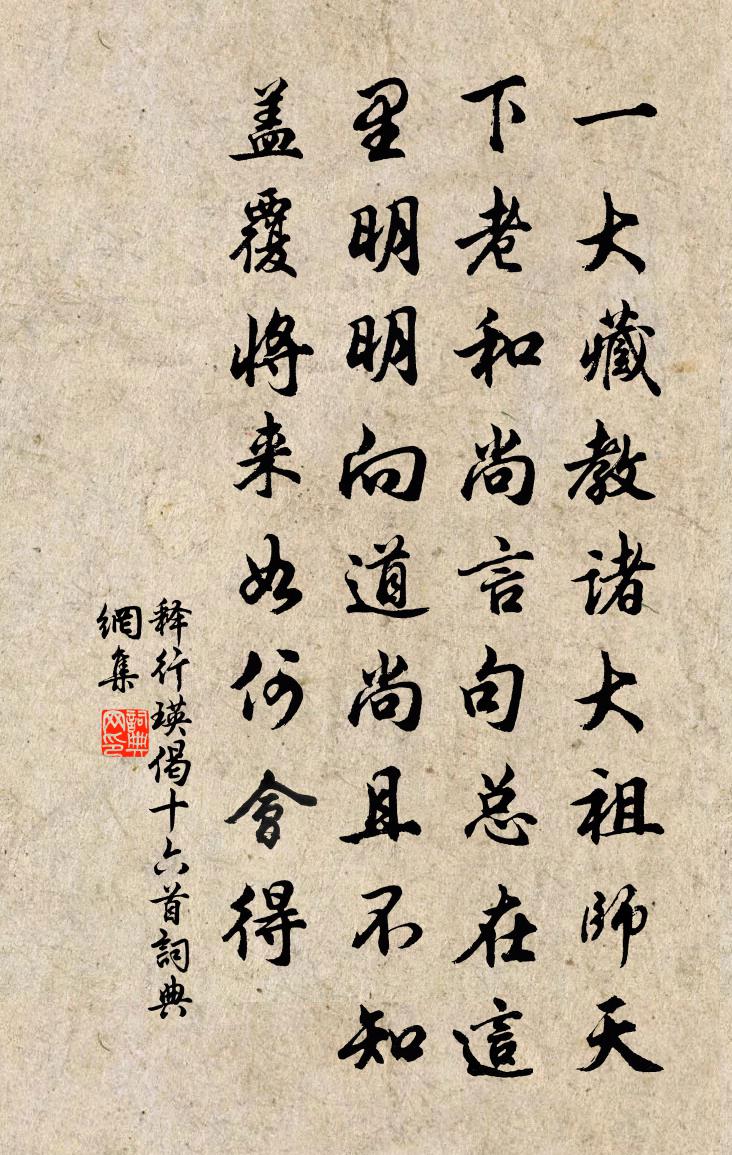 一大藏教诸大祖師天
下老和尚言句总在這
里明明向道尚且不知
盖覆将来如何會得
释行瑛偈十六首詞典
網集
詞典
网印